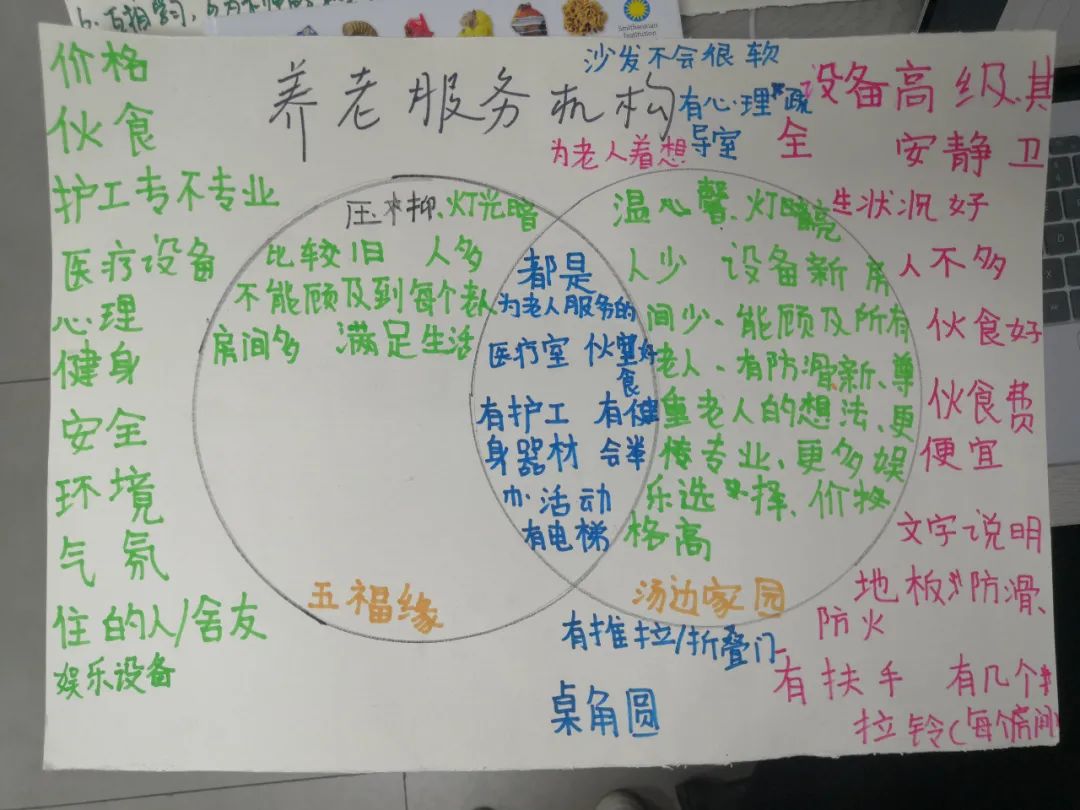 6. 互相学习,
Smithsonian
Institution
养老服务机构
价格
伙食
护工专不专业
医疗设备
心理
健身
安全
环境
气氛
住的人/舍友
娱乐设备
压抑、灯光暗
比较旧 人多
不能顾及到每个老人
房间多 满足生活
五福缘
都是
为老人服务的
医疗室 伙
食
有护工 有健
身器材 会举
办活动
有电梯
温心馨、灯
人少 设备新 房
间少、能顾及所有
老人、有防滑新、尊
重老人的想法、更
专业、更多娱
乐选择、价
格高
汤边家园
沙发不会很软
有心理疏
导室
有推拉/折叠门
桌角圆
为老人着想
设备高级、
全 安静 卫
生状况好
人不多
伙食好
伙食费
便宜
文字说明
地板防滑、
防火
有扶手 有几个
拉铃(每个房间